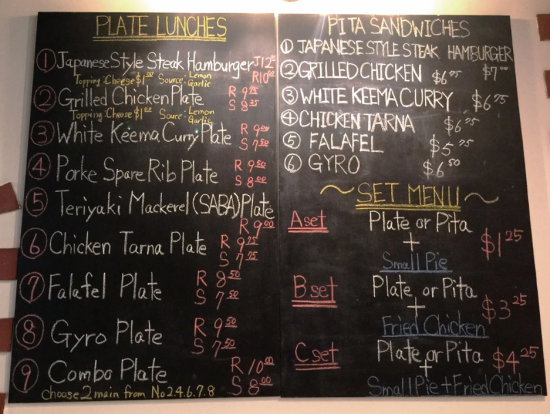 PLATE LUNCHES
① Japanese Style Steak Hamburger J12⁰⁰
R10⁰⁰
Topping Cheese $1⁰⁰ Source - Lemon
Garlic
② Grilled Chicken Plate R 9
S 8
Topping Cheese $1⁰⁰ Source - Lemon
Garlic
③ White Keema Curry Plate R 9
S 7⁵⁰
④ Porke Spare Rib Plate R 9⁵⁰
S 8⁰⁰
⑤ Teriyaki Mackerel (SABA) Plate
R 9⁰⁰
⑥ Chicken Tarna Plate R 9
S 7
⑦ Falafel Plate R 8⁵⁰
S 7⁵⁰
⑧ Gyro Plate R 9⁵⁰
S 7⁵⁰
⑨ Combo Plate R 10⁰⁰
S 8⁰⁰
Choose 2 main from No 2.4.6.7.8
PITA SANDWICHES
① JAPANESE STYLE STEAK HAMBURGER
$7
② GRILLED CHICKEN $6
③ WHITE KEEMA CURRY $6
④ CHICKEN TARNA $6
⑤ FALAFEL $5
⑥ GYRO $6⁵⁰
~ SET MENU ~
A set Plate or Pita
+ $1²⁵
Small Pie
B set Plate or Pita
+ $3²⁵
Fried Chicken
C set Plate or Pita $4²⁵
+
Small Pie + Fried Chicken